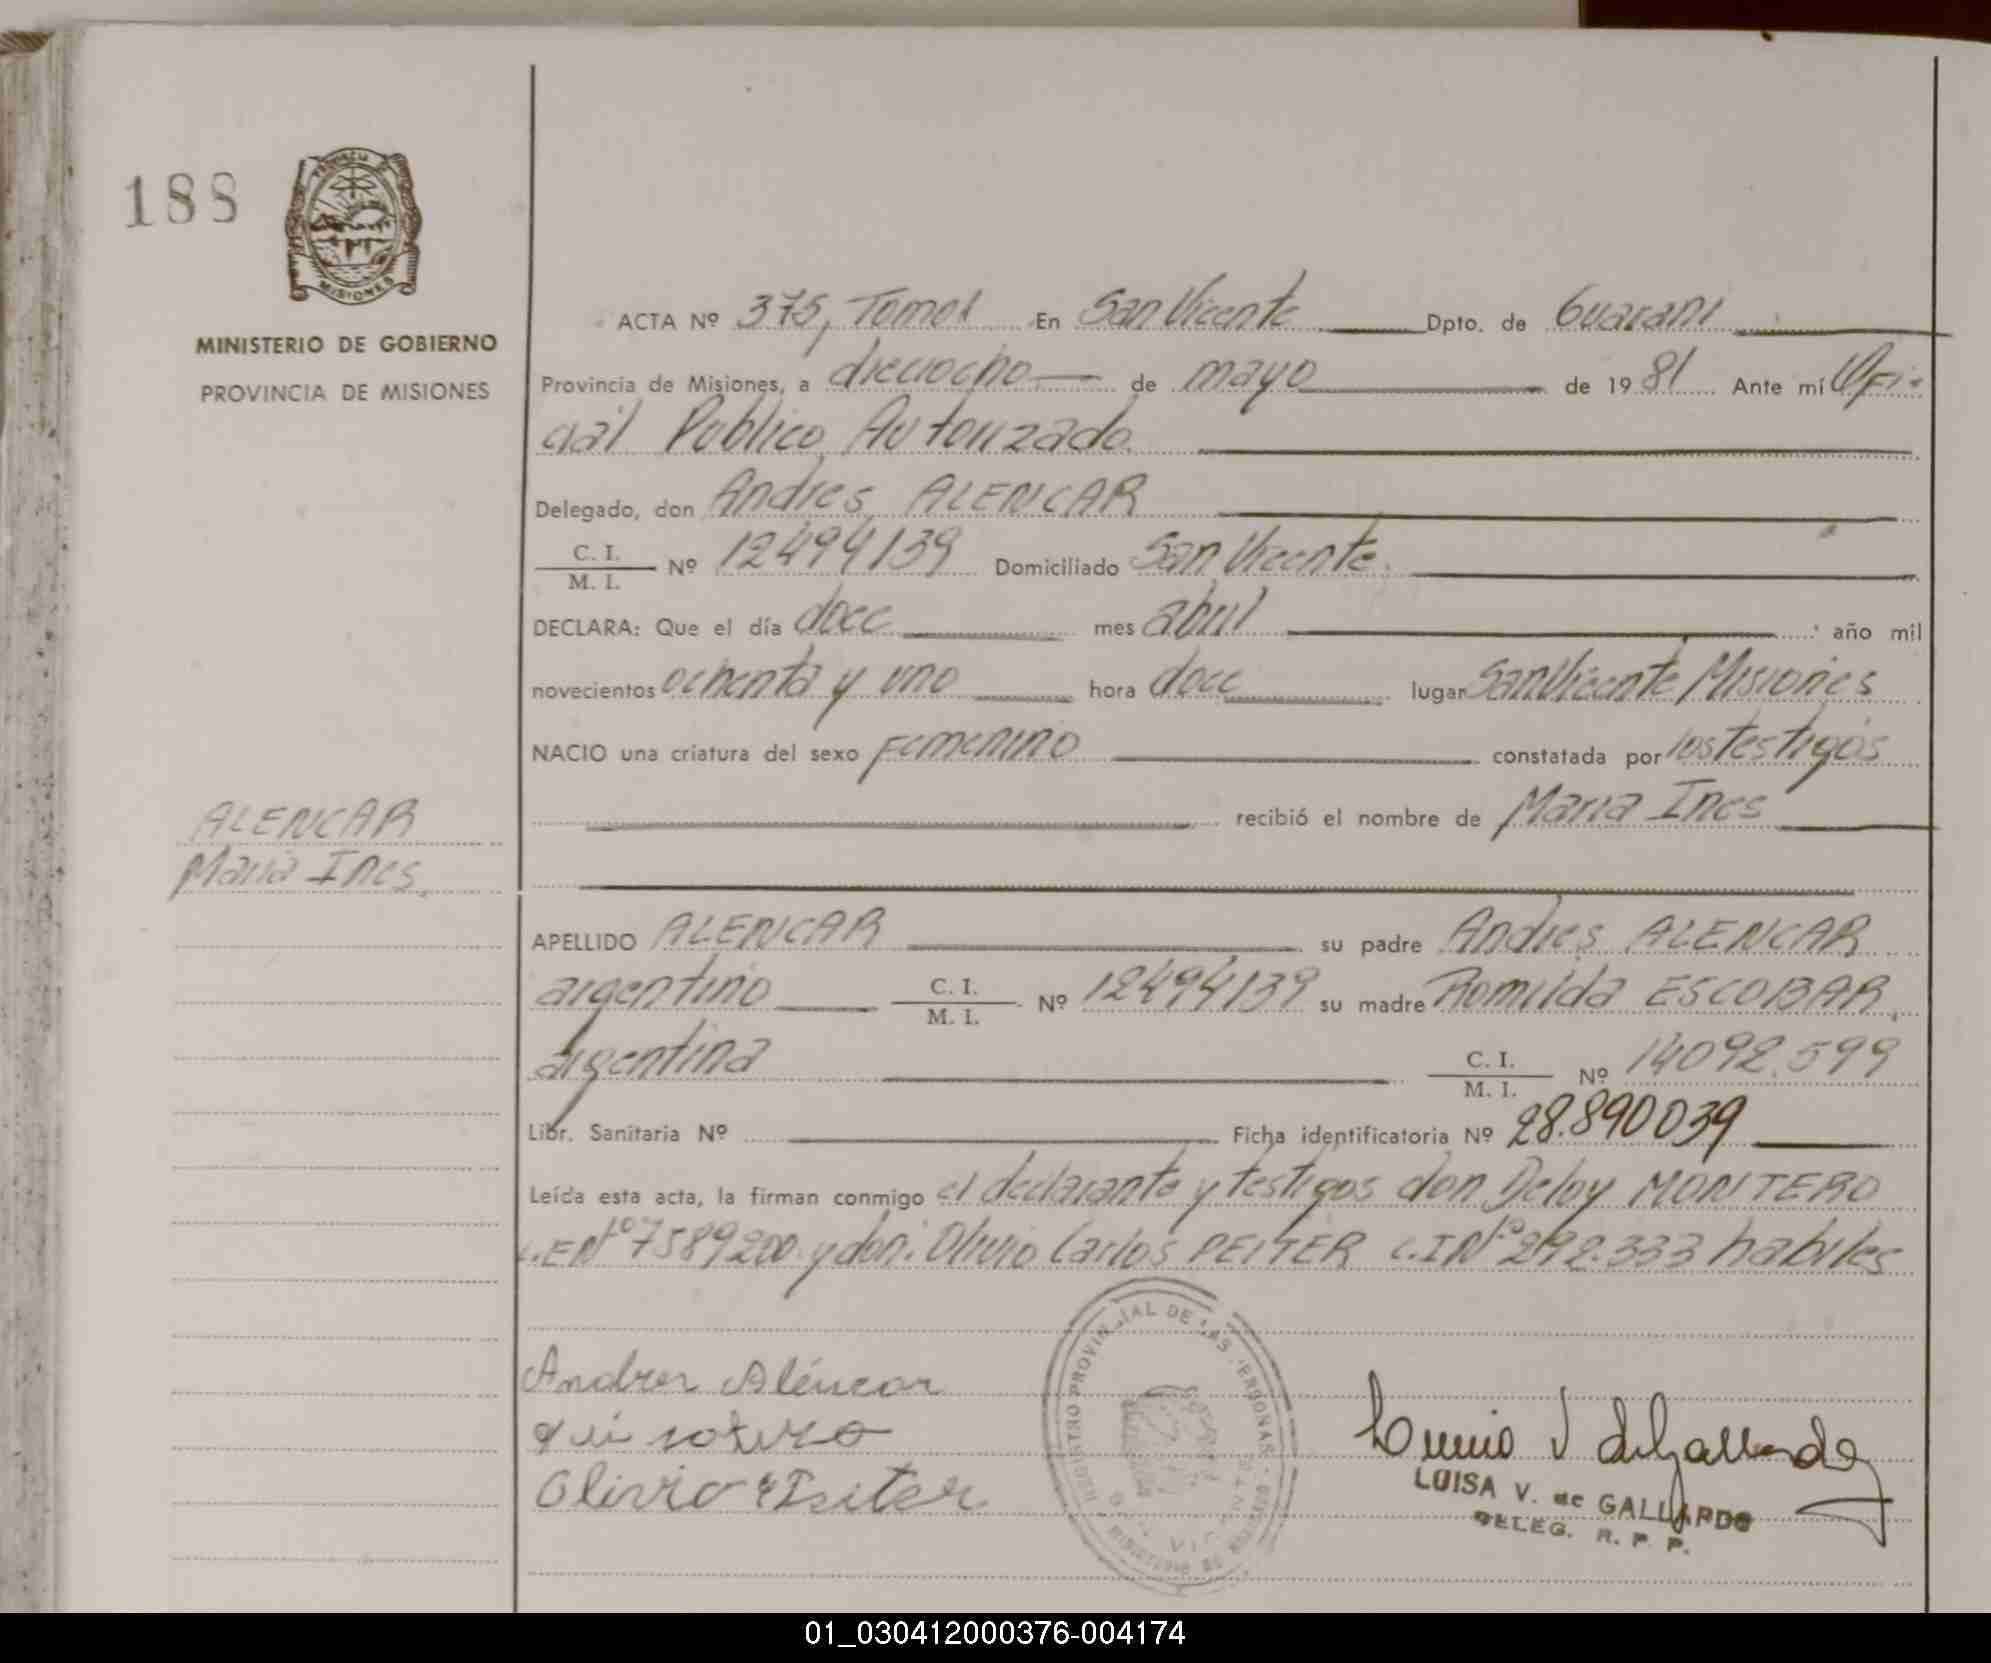 188
PROVINCIA DE
MISIONES
MINISTERIO DE GOBIERNO
PROVINCIA DE MISIONES
ACTA Nº 375, Tomo I En San Vicente Dpto. de Guarani
Provincia de Misiones, a dieciocho de mayo de 1981 Ante mí Ofi-
cial Publico Autorizado
Delegado, don Andres ALENCAR
C. I. / M. I. Nº 12494139 Domiciliado San Vicente.
DECLARA: Que el día doce mes abril año mil
novecientos ochenta y uno hora doce lugar San Vicente Misiones
NACIO una criatura del sexo femenino constatada por los testigos
recibió el nombre de Maria Ines
ALENCAR
Maria Ines.
APELLIDO ALENCAR su padre Andres ALENCAR
argentino C. I. / M. I. Nº 12494139 su madre Romilda ESCOBAR,
argentina C. I. / M. I. Nº 14092.599
Libr. Sanitaria Nº Ficha identificatoria Nº 28.890039
Leída esta acta, la firman conmigo el declarante y testigos don Deloy MONTERO
L.E Nº 7589200 y don: Olivio Carlos PEITER C.I Nº 292.333 habiles
Andres Aléncar
Olivio Peiter
REGISTRO PROVINCIAL DE LAS PERSONAS
LUISA V. de GALLARDO
DELEG. R. P. P.
01_030412000376-004174